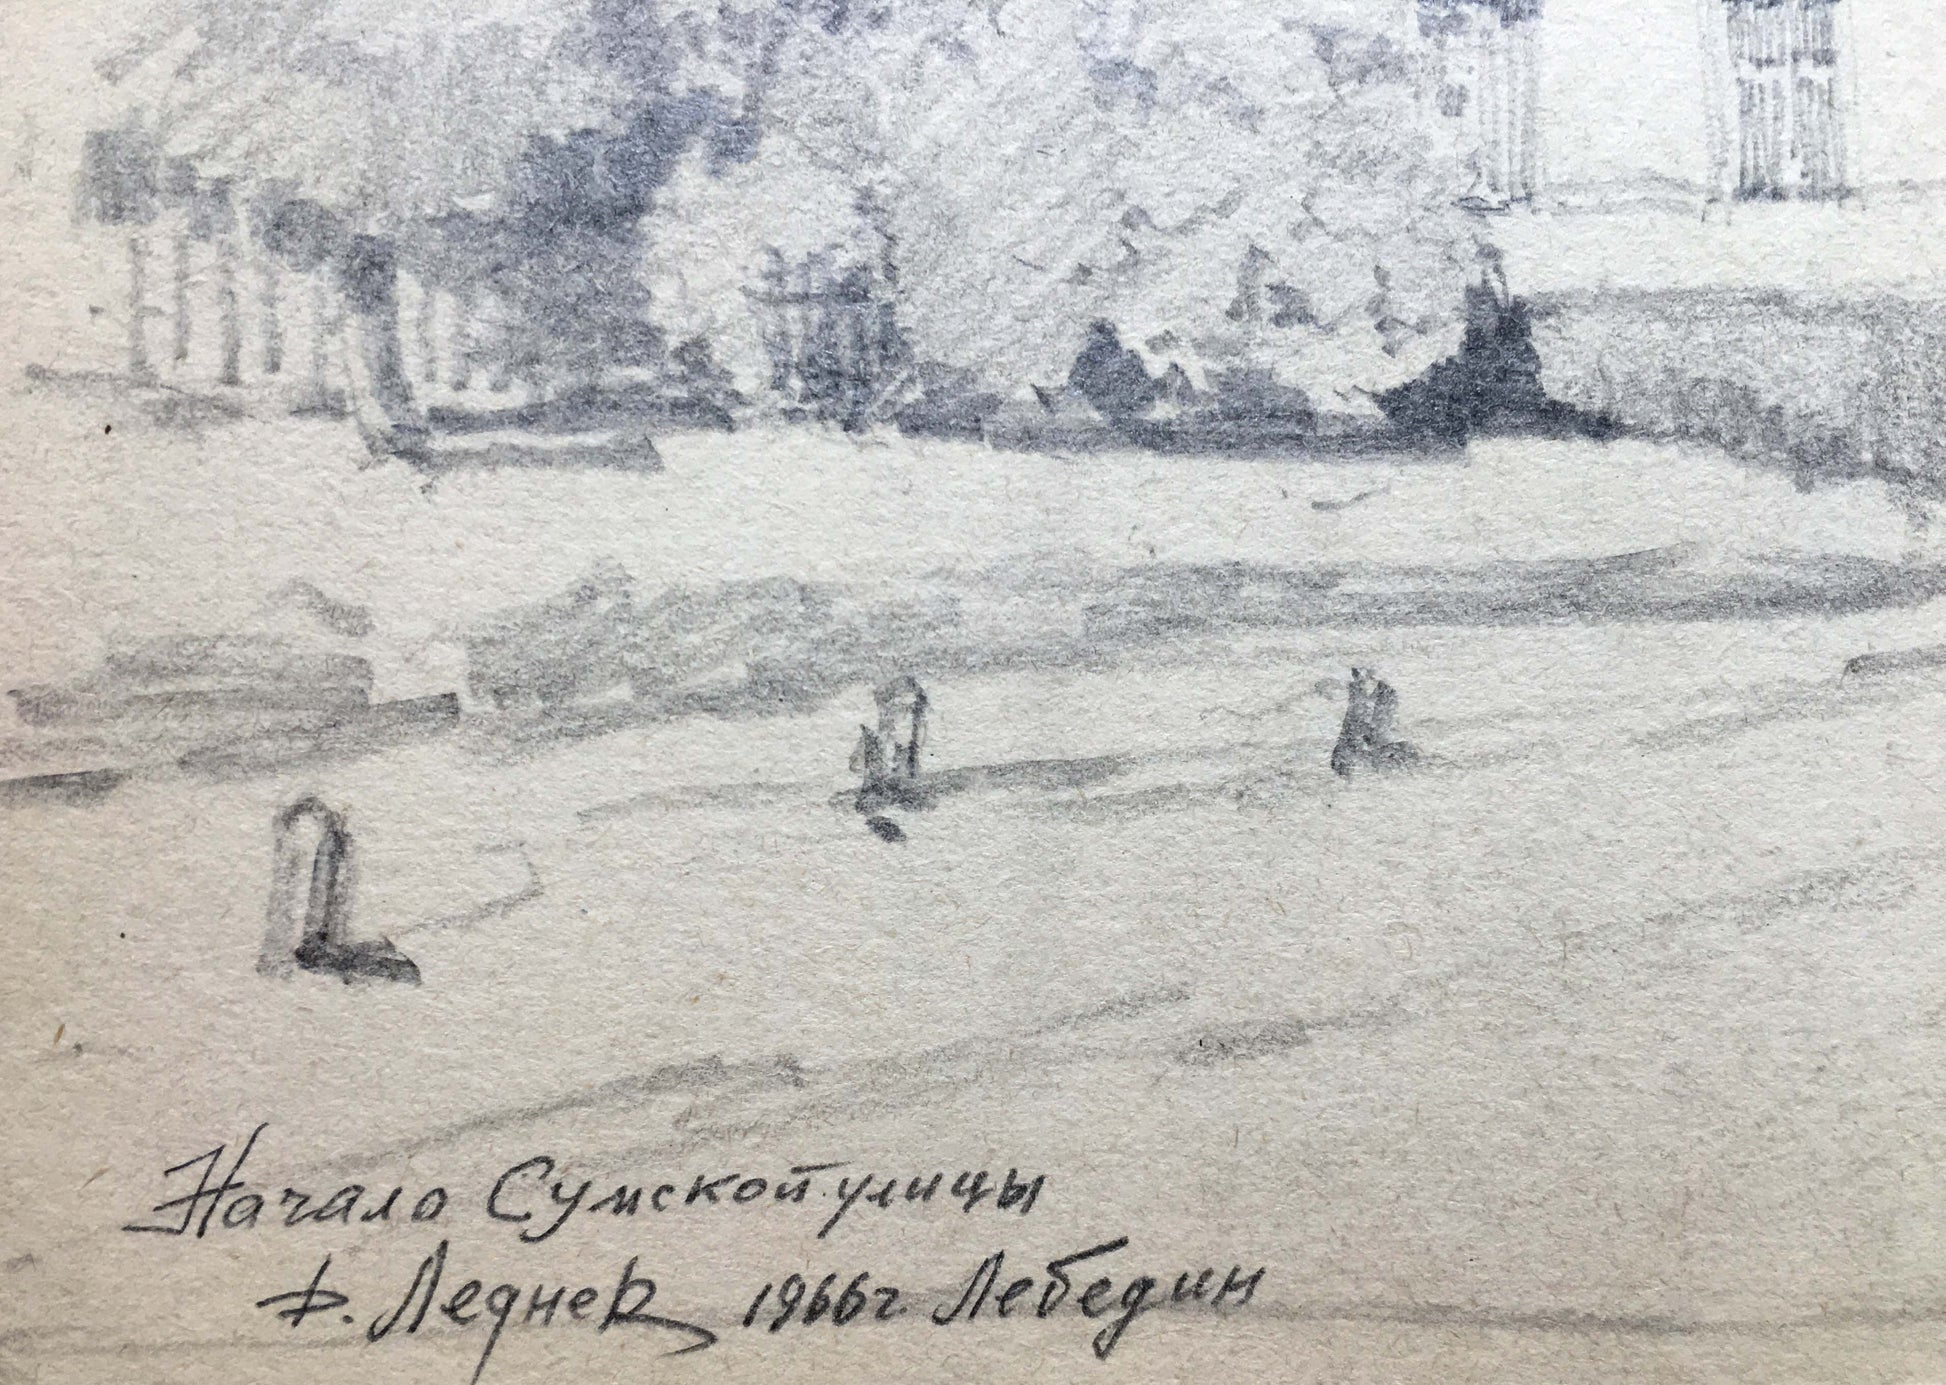 Начало Сумской улицы
Д. Леднев 1966г. Лебедин